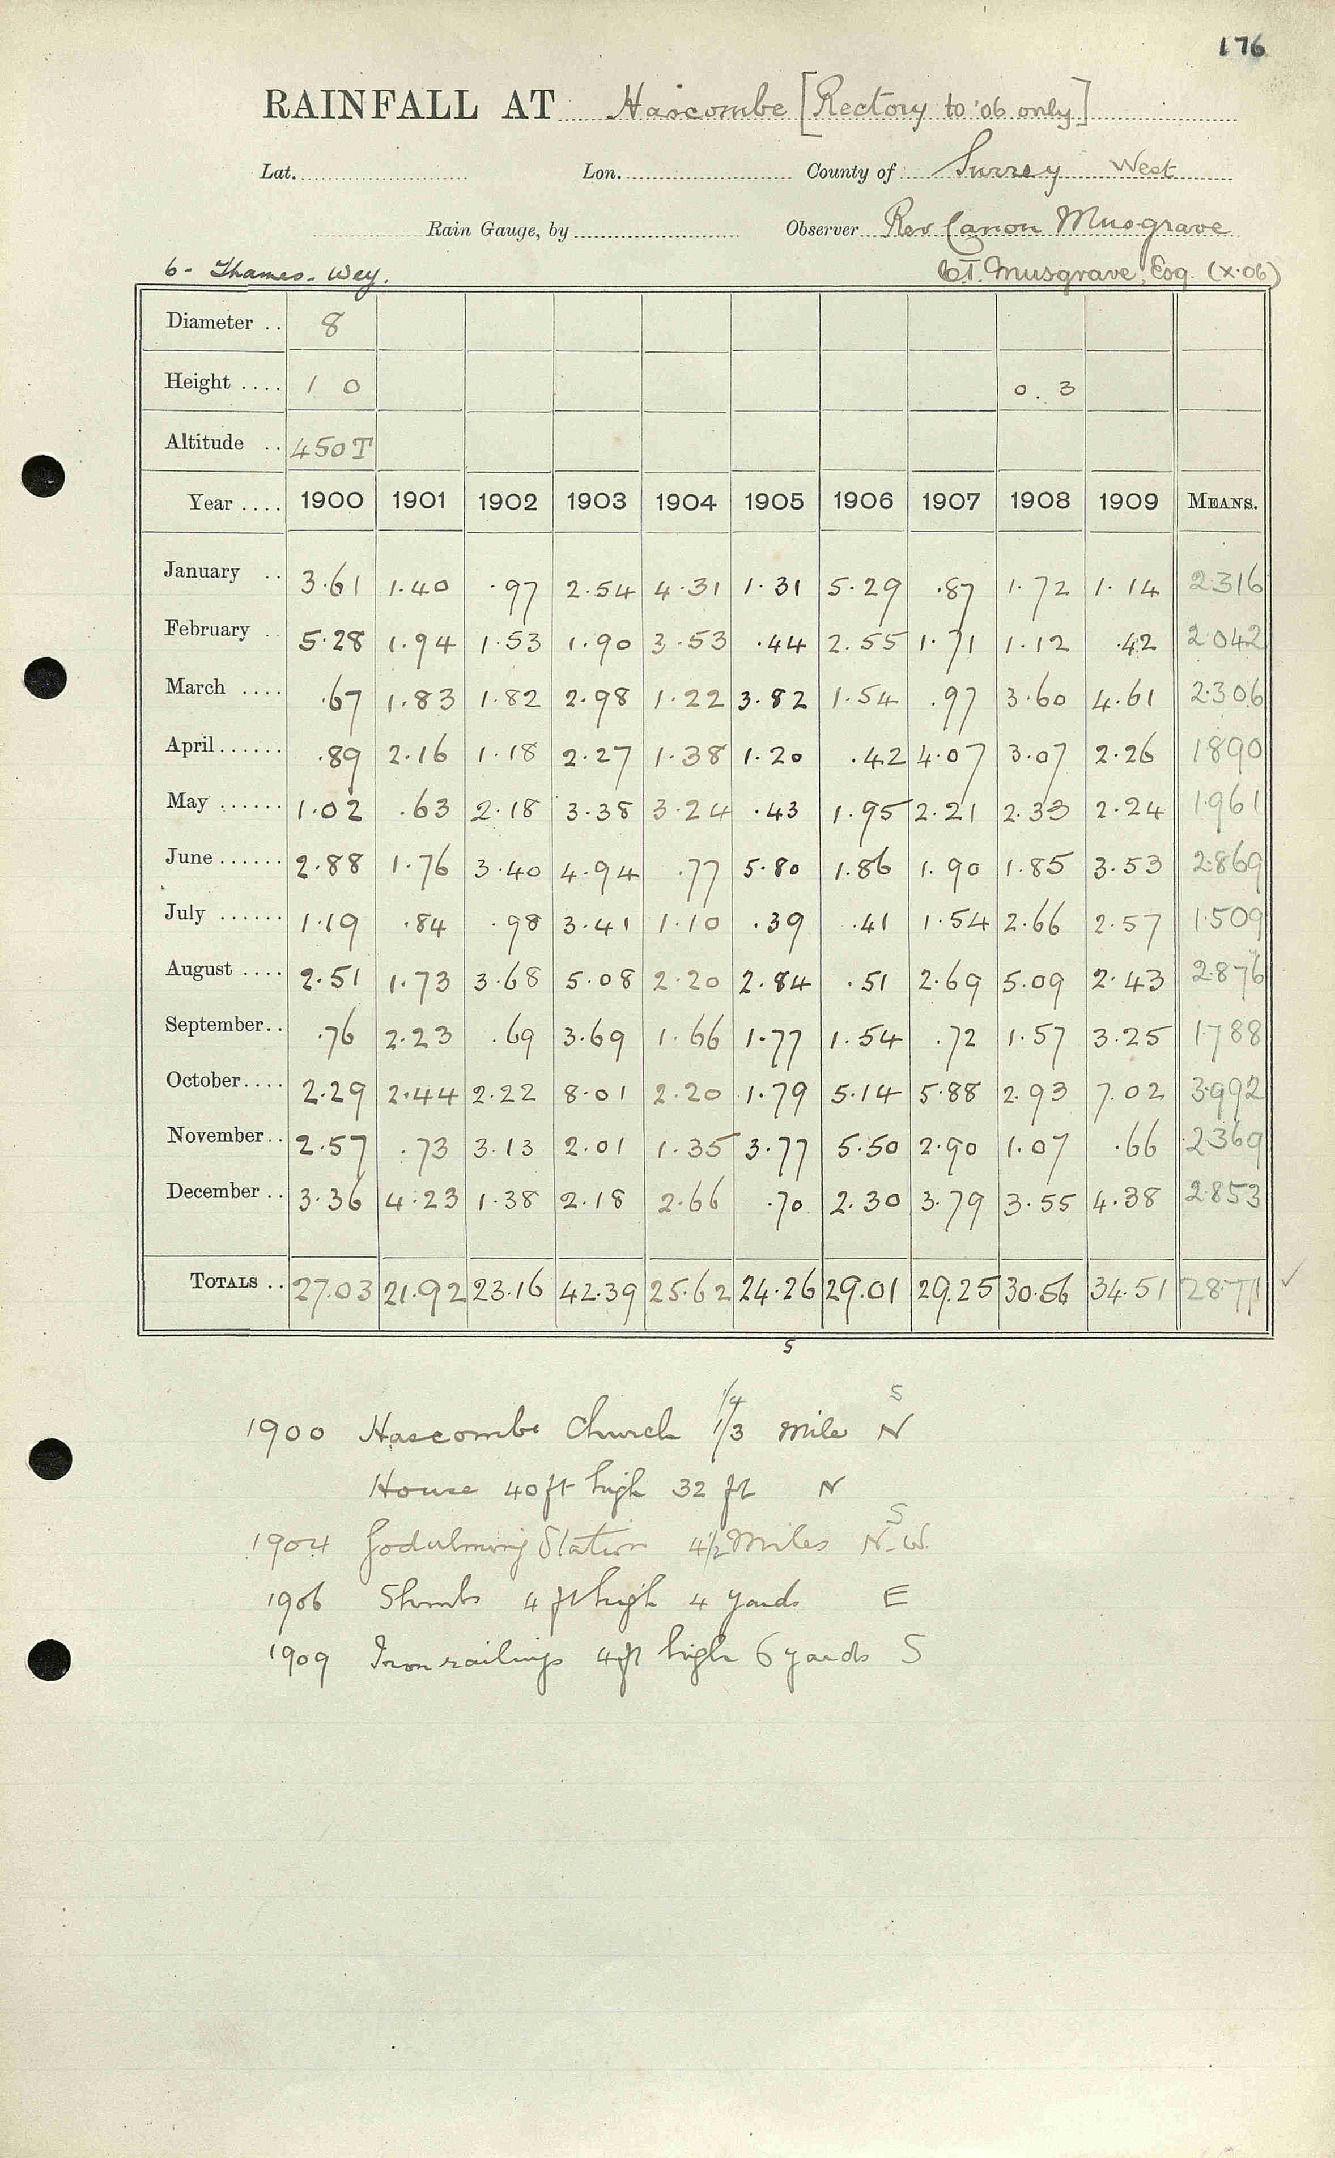 176
RAINFALL AT Hascombe [Rectory to '06 only]
Lat. Lon. County of Surrey West
Rain Gauge, by Observer Rev Canon Musgrave
6 - Thames - Wey. C.T. Musgrave, Esq. (X.06)
Diameter .. 8
Height .... 1 0 0. 3
Altitude .. 450T
Year .... 1900 1901 1902 1903 1904 1905 1906 1907 1908 1909 MEANS.
January .. 3.61 1.40 .97 2.54 4.31 1.31 5.29 .87 1.72 1.14 2.316
February .. 5.28 1.94 1.53 1.90 3.53 .44 2.55 1.71 1.12 .42 2.042
March .... .67 1.83 1.82 2.98 1.22 3.82 1.54 .97 3.60 4.61 2.306
April...... .89 2.16 1.18 2.27 1.38 1.20 .42 4.07 3.07 2.26 1890
May ...... 1.02 .63 2.18 3.38 3.24 .43 1.95 2.21 2.33 2.24 1.961
June ...... 2.88 1.76 3.40 4.94 .77 5.80 1.86 1.90 1.85 3.53 2.869
July ...... 1.19 .84 .98 3.41 1.10 .39 .41 1.54 2.66 2.57 1.509
August .... 2.51 1.73 3.68 5.08 2.20 2.84 .51 2.69 5.09 2.43 2.876
September.. .76 2.23 .69 3.69 1.66 1.77 1.54 .72 1.57 3.25 1788
October.... 2.29 2.44 2.22 8.01 2.20 1.79 5.14 5.88 2.93 7.02 3.992
November.. 2.57 .73 3.13 2.01 1.35 3.77 5.50 2.90 1.07 .66 2369
December .. 3.36 4.23 1.38 2.18 2.66 .70 2.30 3.79 3.55 4.38 2.853
TOTALS .. 27.03 21.92 23.16 42.39 25.62 24.26 29.01 29.25 30.56 34.51 28.771 ✓
5
1/4 S
1900 Hascombe Church 1/3 mile N
House 40 ft high 32 ft N
S
1904 Godalming Station 4½ Miles N.W.
1906 Shrubs 4 ft high 4 yards E
1909 Iron railings 4 ft high 6 yards S